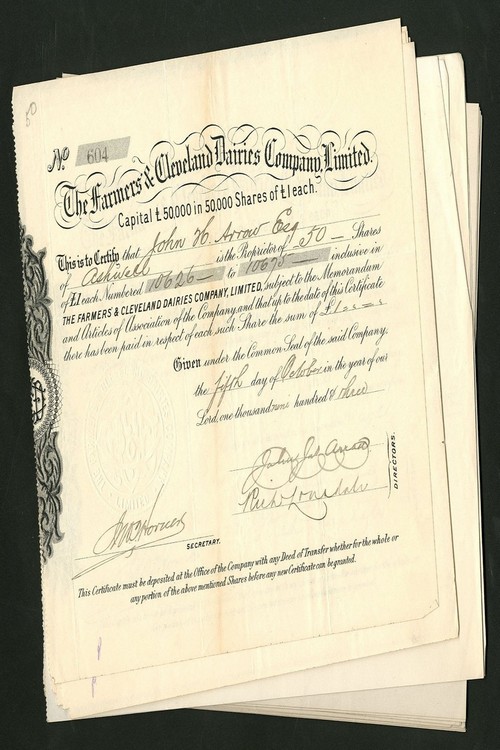 50
No 604
The Farmers & Cleveland Dairies Company, Limited.
Capital £50,000 in 50,000 Shares of £1 each.
This is to Certify that John H. Arrow Esq
of Ashwell is the Proprietor of 50 — Shares
of £1 each Numbered 10626 — to 10675 — inclusive in
THE FARMERS' & CLEVELAND DAIRIES COMPANY, LIMITED, subject to the Memorandum
and Articles of Association of the Company, and that up to the date of this Certificate
there has been paid in respect of each such Share the sum of £1
Given under the Common Seal of the said Company,
the fifth day of October in the year of our
Lord, one thousand nine hundred & three
DIRECTORS.
SECRETARY.
This Certificate must be deposited at the Office of the Company with any Deed of Transfer whether for the whole or
any portion of the above mentioned Shares before any new Certificate can be granted.